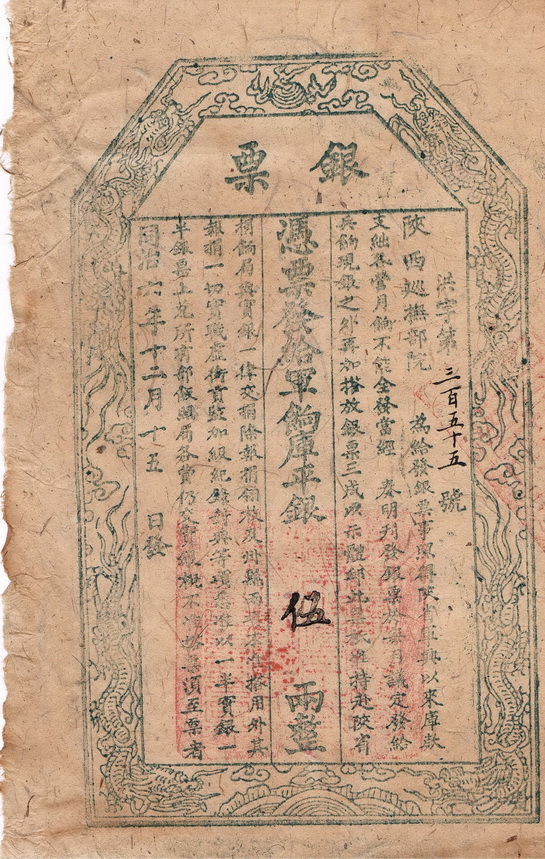 銀票
洪字第三百五十五號
陝西巡撫部院 為給發銀票事照得陝省軍興以來庫款
支絀各營月餉不能全發當經 奏明刊發銀票按每月議定發給
兵餉現銀之外再加搭放銀票三成以示體卹此票准持赴陝省
憑票發給軍餉庫平銀伍兩整
捐餉局與實銀一律交捐除報捐翎枝及州縣兩項不准搭用外其
報捐一切實職虛銜貢監加級紀錄封典等項悉准以一半實銀一
半銀票上兌所有部飯照局各費仍交實銀概不准搭票須至票者
同治六年十二月十五日發